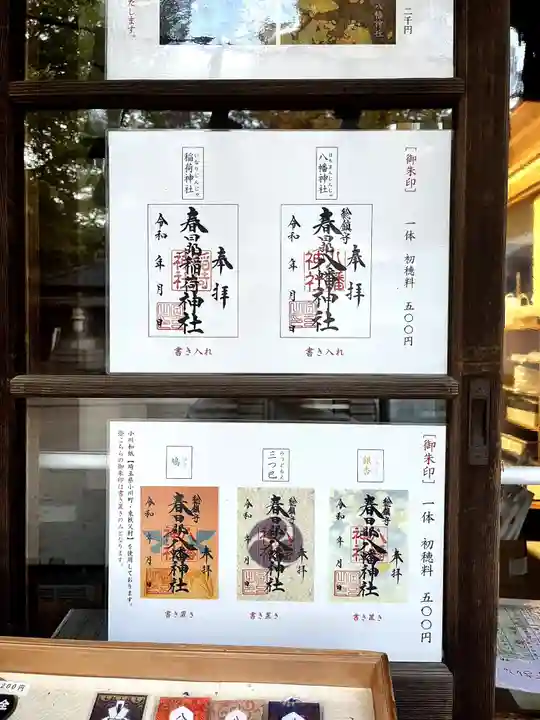 二千円
八幡神社
たします。
［御朱印］　一体　初穂料　五〇〇円
はちまんじんじゃ
八幡神社
奉拝
総鎮守
春日部八幡神社
令和　年　月　日
書き入れ
いなりじんじゃ
稲荷神社
奉拝
春日部稲荷神社
令和　年　月　日
書き入れ
［御朱印］　一体　初穂料　五〇〇円
銀杏
奉拝
総鎮守
春日部八幡神社
令和　年　月　日
書き置き
みつどもえ
三つ巴
奉拝
総鎮守
春日部八幡神社
令和　年　月　日
書き置き
鳩
奉拝
総鎮守
春日部八幡神社
令和　年　月　日
書き置き
小川和紙【埼玉県小川町・東秩父村】を使用しております。
※こちらの御朱印は書き置きのみとなります。
200円